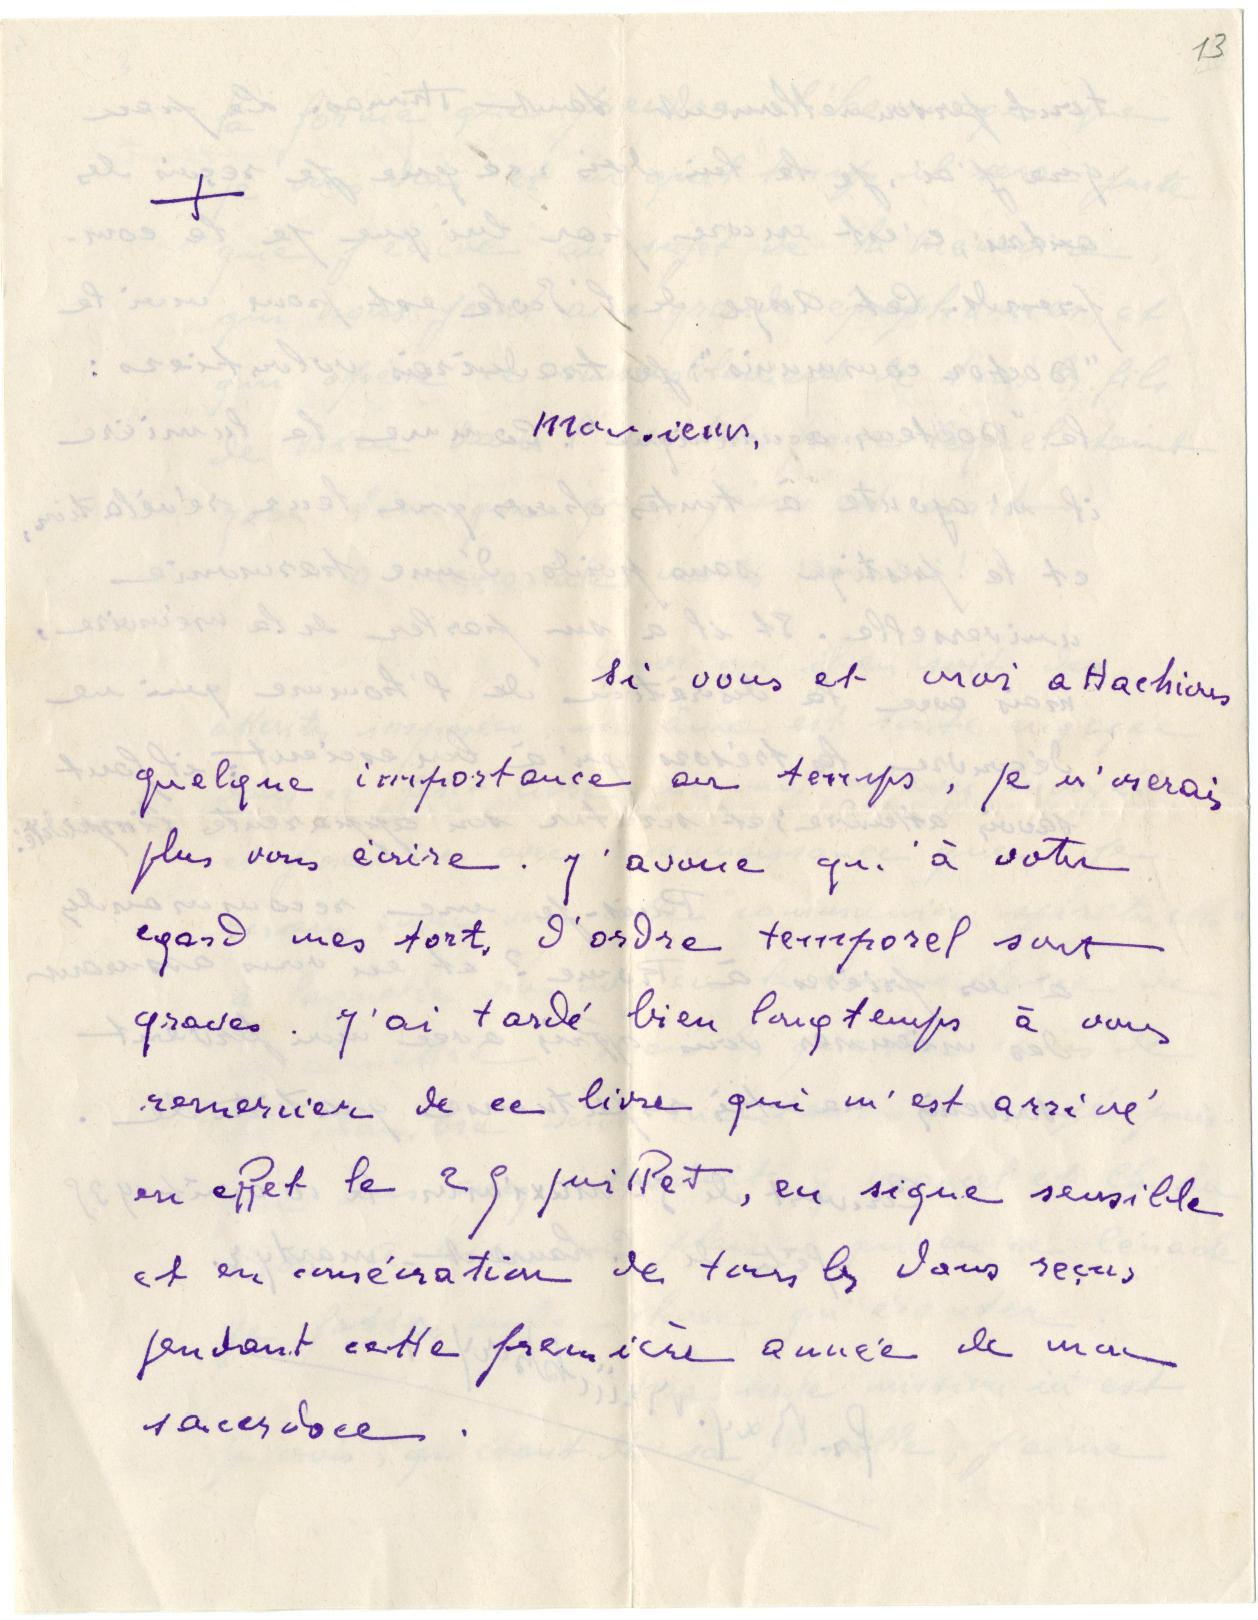 13
+
Monsieur,
Si vous et moi attachions
quelque importance au temps, je n'oserais
plus vous écrire. J'avoue qu'à votre
egard mes torts d'ordre temporel sont
graves. J'ai tardé bien longtemps à vous
remercier de ce livre qui m'est arrivé
en effet le 29 juillet, en signe sensible
et en consécration de tous les dons reçus
pendant cette première année de mon
sacerdoce.